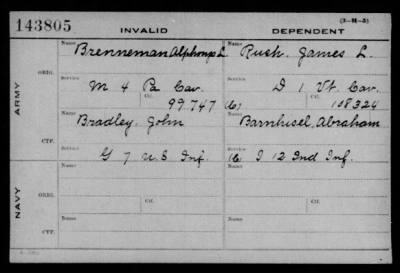 143805 INVALID DEPENDENT (3-H-5)
ARMY
NAVY
ORIG.
CTF.
ORIG.
CTF.
Name Brenneman Alphonso L Name Rush. James L.
Service M 4 Pa Cav. Service D 1 Vt. Cav.
Ctf. 99747 Ctf. 108324
Name Bradley. John Name Barnhisel, Abraham
Service G 7 U.S. Inf. Service I 12 Ind Inf.
Name Name
Service Ctf. Service Ctf.
Name Name
Service Ctf. Service Ctf.